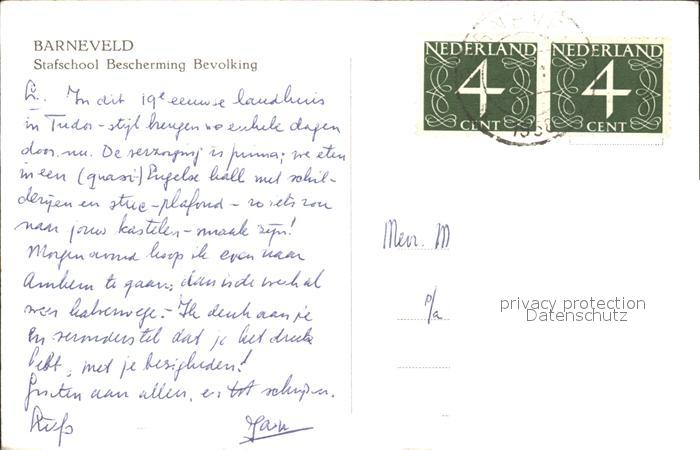 BARNEVELD
Stafschool Bescherming Bevolking
L. In dit 19e eeuwse landhuis
in Tudor-stijl brengen we enkele dagen
door nu. De verzorging is prima; we eten
in een (quasi-) Engelse hall met schil-
derijen en stuc-plafond - zoiets zou
naar jouw kastelen-smaak zijn!
Morgenavond hoop ik even naar
Arnhem te gaan; dan is de week al
weer halverwege. - Ik denk aan je
en veronderstel dat je het druk
hebt, met je bezigheden!
Groeten aan allen, en tot schrijven.
Liefs
NEDERLAND
4
CENT
NEDERLAND
4
CENT
Mevr. M
p/a
privacy protection
Datenschutz